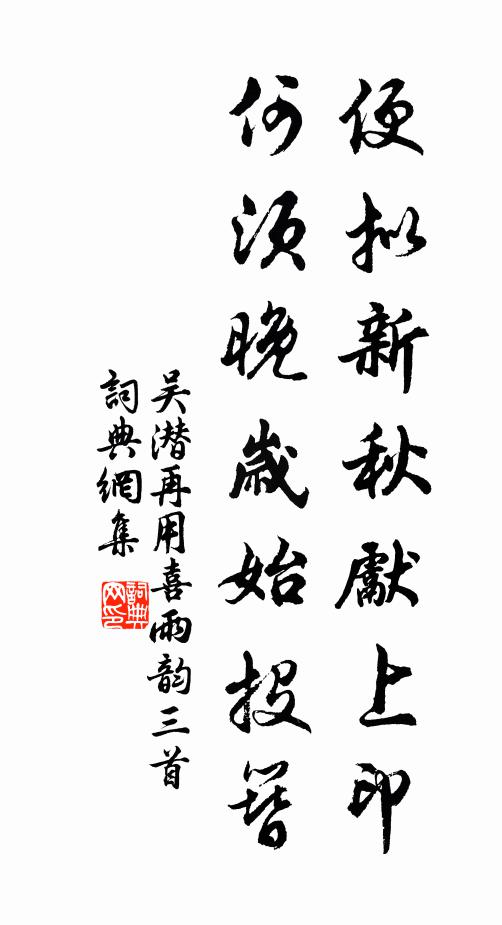 便拟新秋獻上印
何須晚歲始投簪
吴潜再用喜雨韵三首
詞典網集
詞典网印